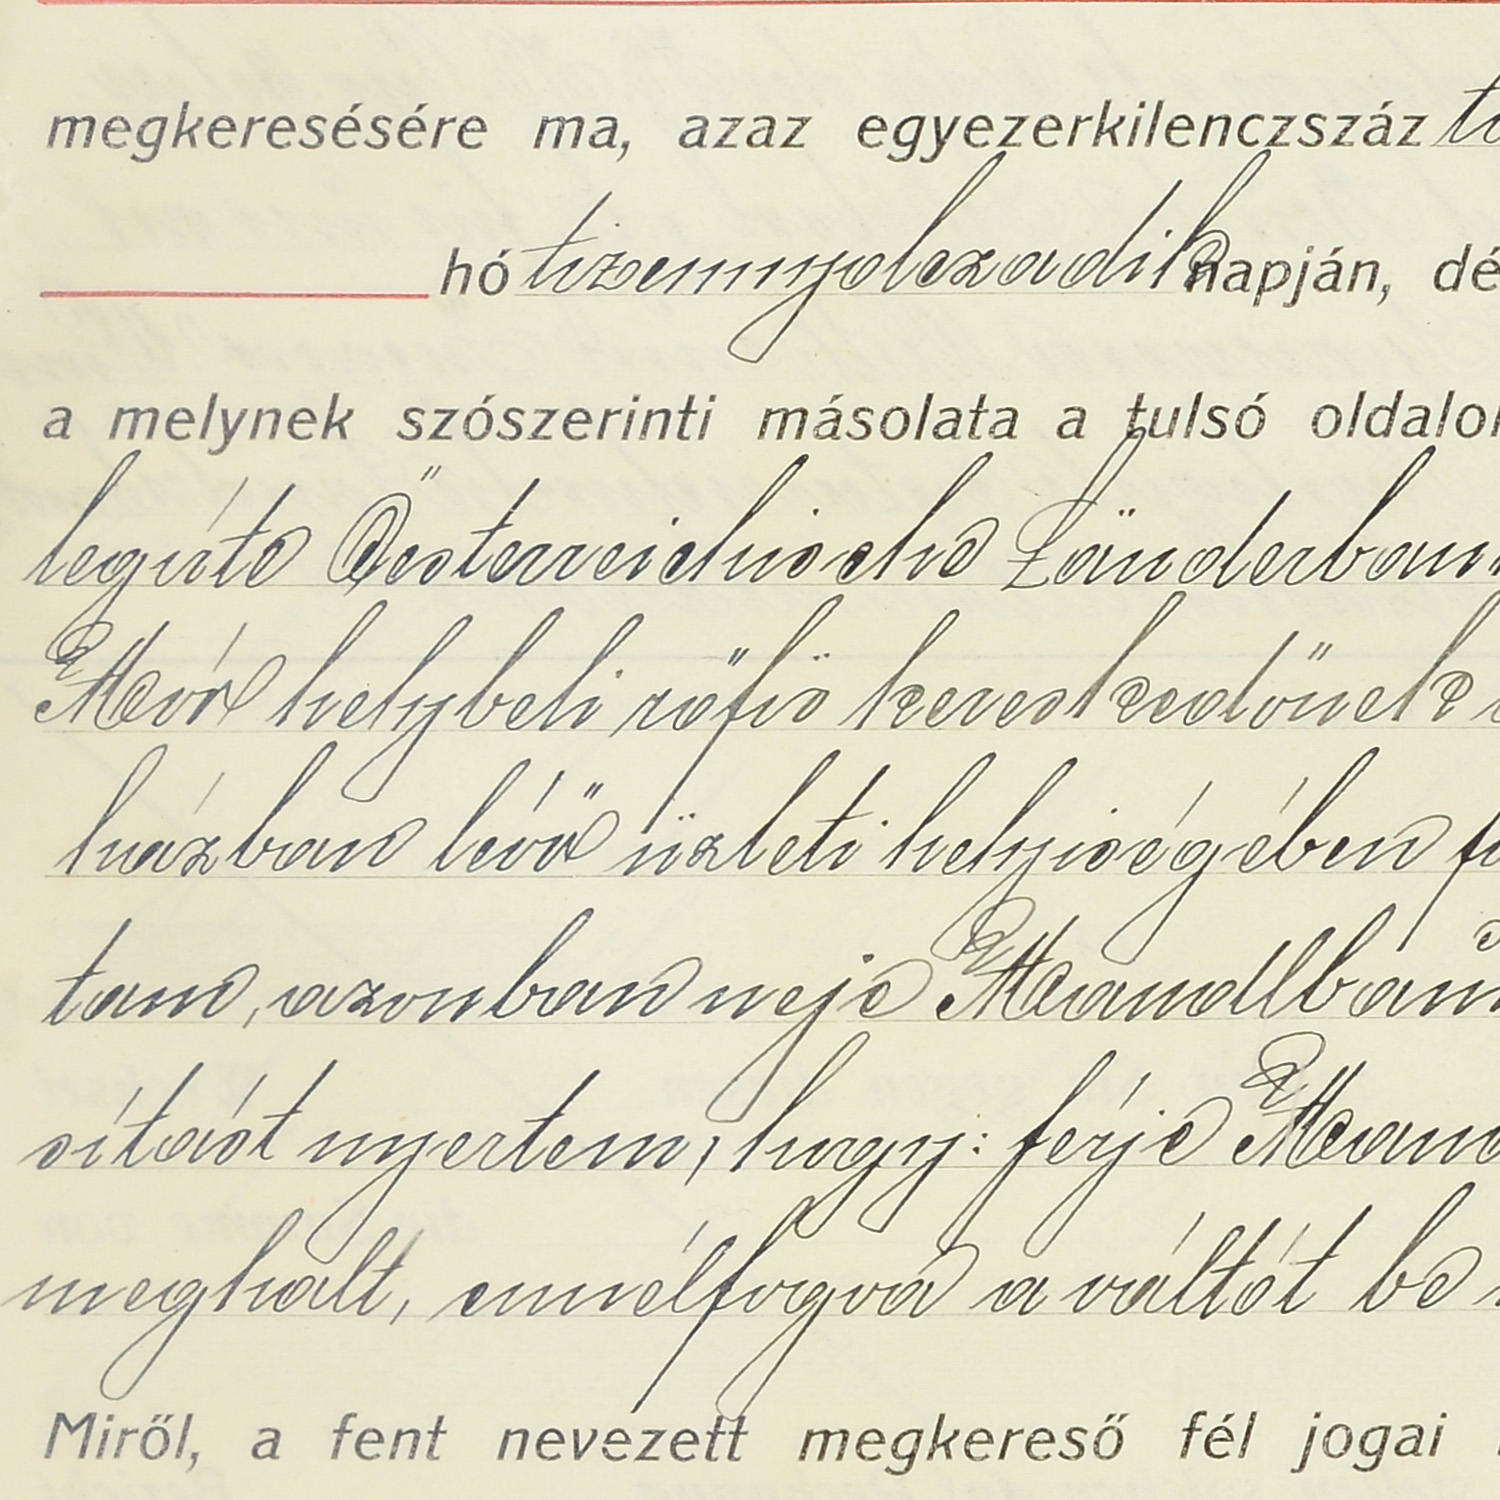 megkeresésére ma, azaz egyezerkilenczszáz
hó tizennyolczadik napján, dé
a melynek szószerinti másolata a tulsó oldalon
legűtő Österreichische Länderban
Mór helybeli rőfös kereskedőnek
házban lévő üzleti helyiségében
tam, azonban neje Mandlbaum
sítást nyertem, hogy: férje Mand
meghalt, ennélfogva a váltót be
Miről, a fent nevezett megkereső fél jogai